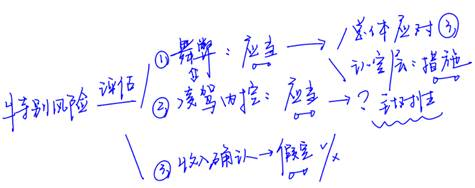 特别风险 评估
① 舞弊：应当 → 总体应对③
认定层：措施
② 凌驾内控：应当 → ？针对性
③ 收入确认 → 假定 √/×